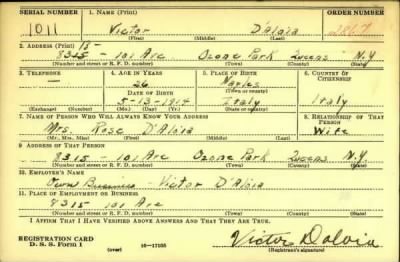 SERIAL NUMBER 1. NAME (Print) ORDER NUMBER
1011 Victor D'Aloia 2867
(First) (Middle) (Last)
2. ADDRESS (Print)
8315 - 101 Ave Ozone Park Queens N.Y
(Number and street or R. F. D. number) (Town) (County) (State)
3. TELEPHONE 4. AGE IN YEARS 5. PLACE OF BIRTH 6. COUNTRY OF CITIZENSHIP
— 26 Naples
DATE OF BIRTH (Town or county)
5-13-1914 Italy Italy
(Exchange) (Number) (Mo.) (Day) (Yr.) (State or country)
7. NAME OF PERSON WHO WILL ALWAYS KNOW YOUR ADDRESS 8. RELATIONSHIP OF THAT PERSON
Mrs. Rose D'Aloia Wife
(Mr., Mrs., Miss) (First) (Middle) (Last)
9. ADDRESS OF THAT PERSON
8315 - 101 Ave Ozone Park Queens N.Y.
(Number and street or R. F. D. number) (Town) (County) (State)
10. EMPLOYER'S NAME
Own Business - Victor D'Aloia
11. PLACE OF EMPLOYMENT OR BUSINESS
8315 101 Ave
(Number and street or R. F. D. number) (Town) (County) (State)
I AFFIRM THAT I HAVE VERIFIED ABOVE ANSWERS AND THAT THEY ARE TRUE.
REGISTRATION CARD
D. S. S. Form 1 (over) 16-17105 Victor Daloia
(Registrant's signature)